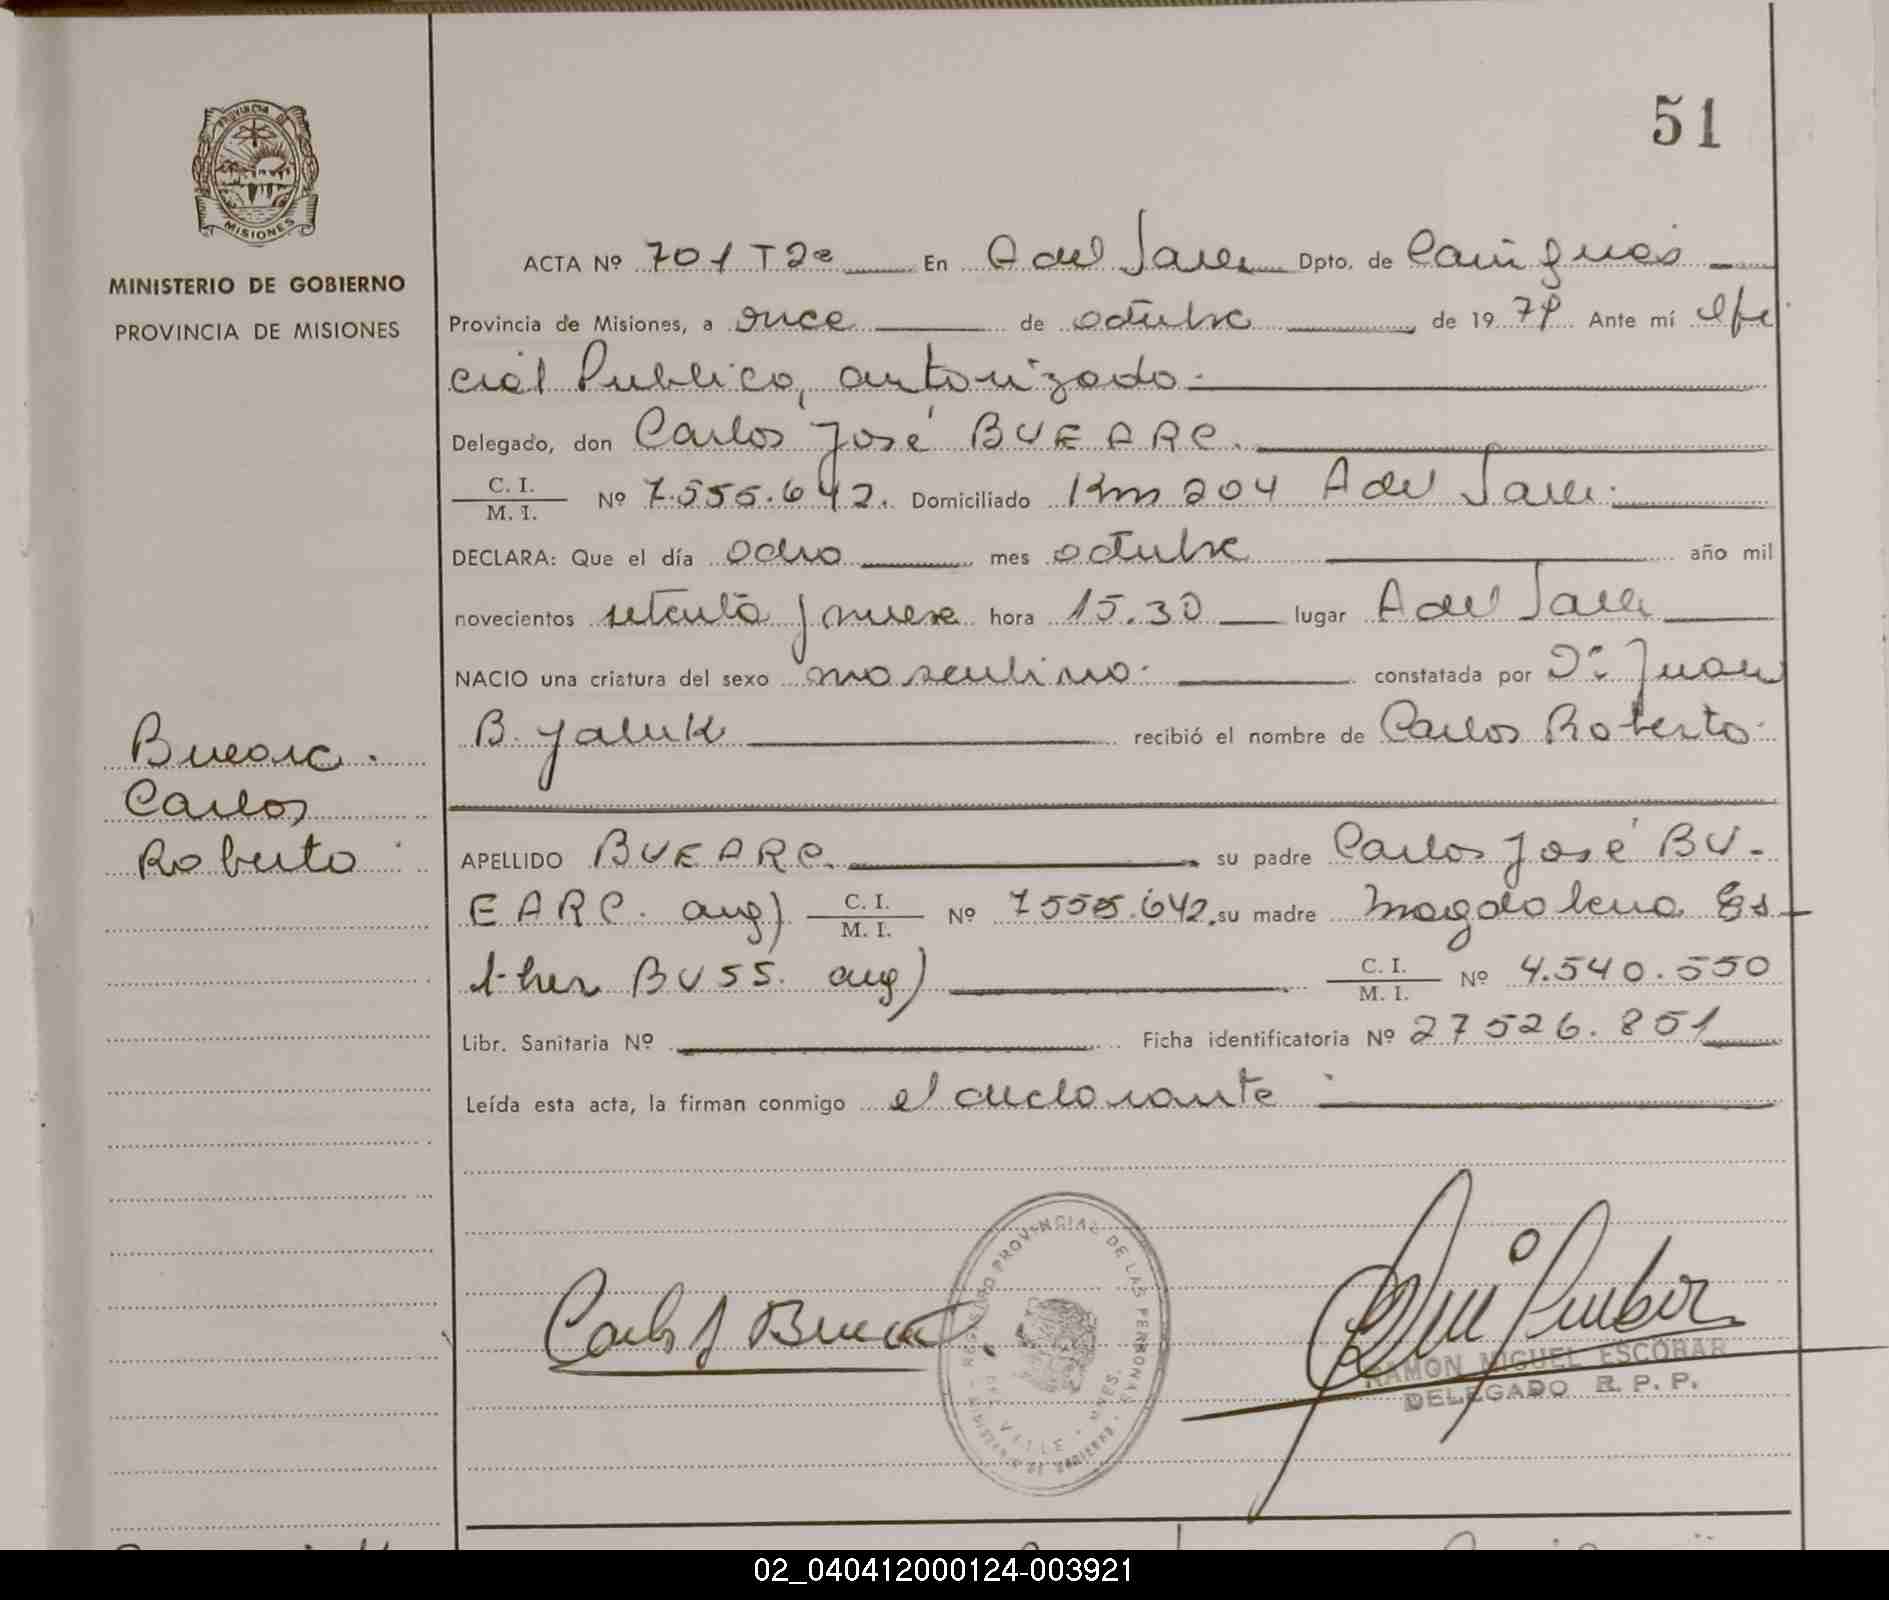 PROVINCIA DE
MISIONES
MINISTERIO DE GOBIERNO
PROVINCIA DE MISIONES
51
ACTA Nº 701 T2º En A del Valle Dpto. de Cainguás
Provincia de Misiones, a once de octubre de 1979 Ante mí Ofi
cial Publico, autorizado.
Delegado, don Carlos José BUEARC.
C. I. / M. I. Nº 7.555.642. Domiciliado Km 204 A del Valle.
DECLARA: Que el día ocho mes octubre año mil
novecientos setenta y nueve hora 15.30 lugar A del Valle
NACIO una criatura del sexo masculino. constatada por Dr. Juan
B. Yaluk recibió el nombre de Carlos Roberto.
Buearc.
Carlos
Roberto
APELLIDO BUEARC. su padre Carlos José BU-
EARC. arg) C. I. / M. I. Nº 7555.642. su madre Magdalena Es
ther BUSS. arg) C. I. / M. I. Nº 4.540.550
Libr. Sanitaria Nº Ficha identificatoria Nº 27526.851
Leída esta acta, la firman conmigo el declarante
Carlos J Buearc
REGISTRO PROVINCIAL DE LAS PERSONAS
DEL VALLE - MNES.
MINISTERIO DE GOBIERNO
RAMON MIGUEL ESCOBAR
DELEGADO R. P. P.
02_040412000124-003921